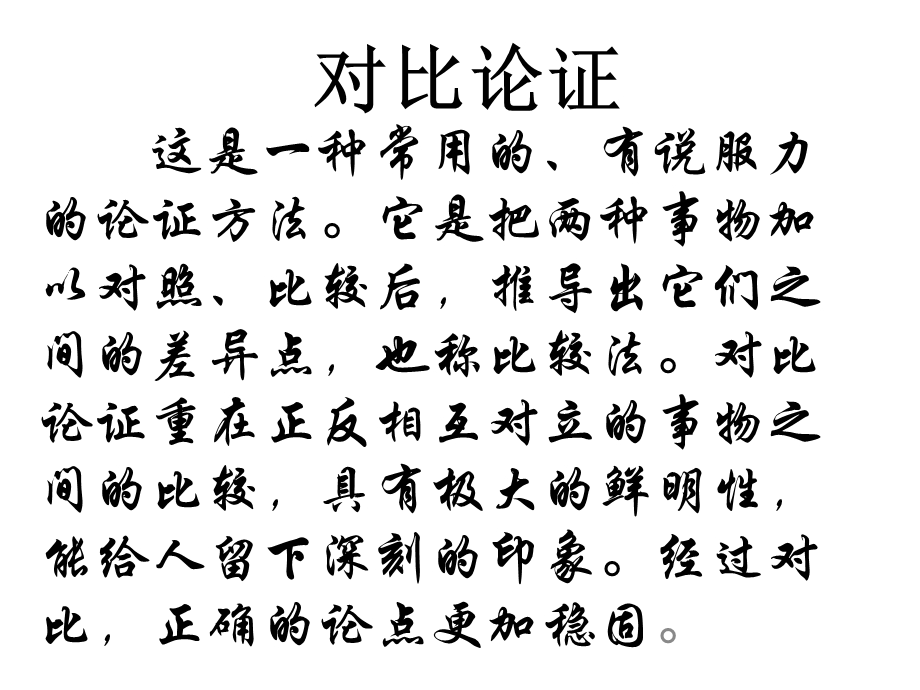 对比论证
这是一种常用的、有说服力
的论证方法。它是把两种事物加
以对照、比较后，推导出它们之
间的差异点，也称比较法。对比
论证重在正反相互对立的事物之
间的比较，具有极大的鲜明性，
能给人留下深刻的印象。经过对
比，正确的论点更加稳固。